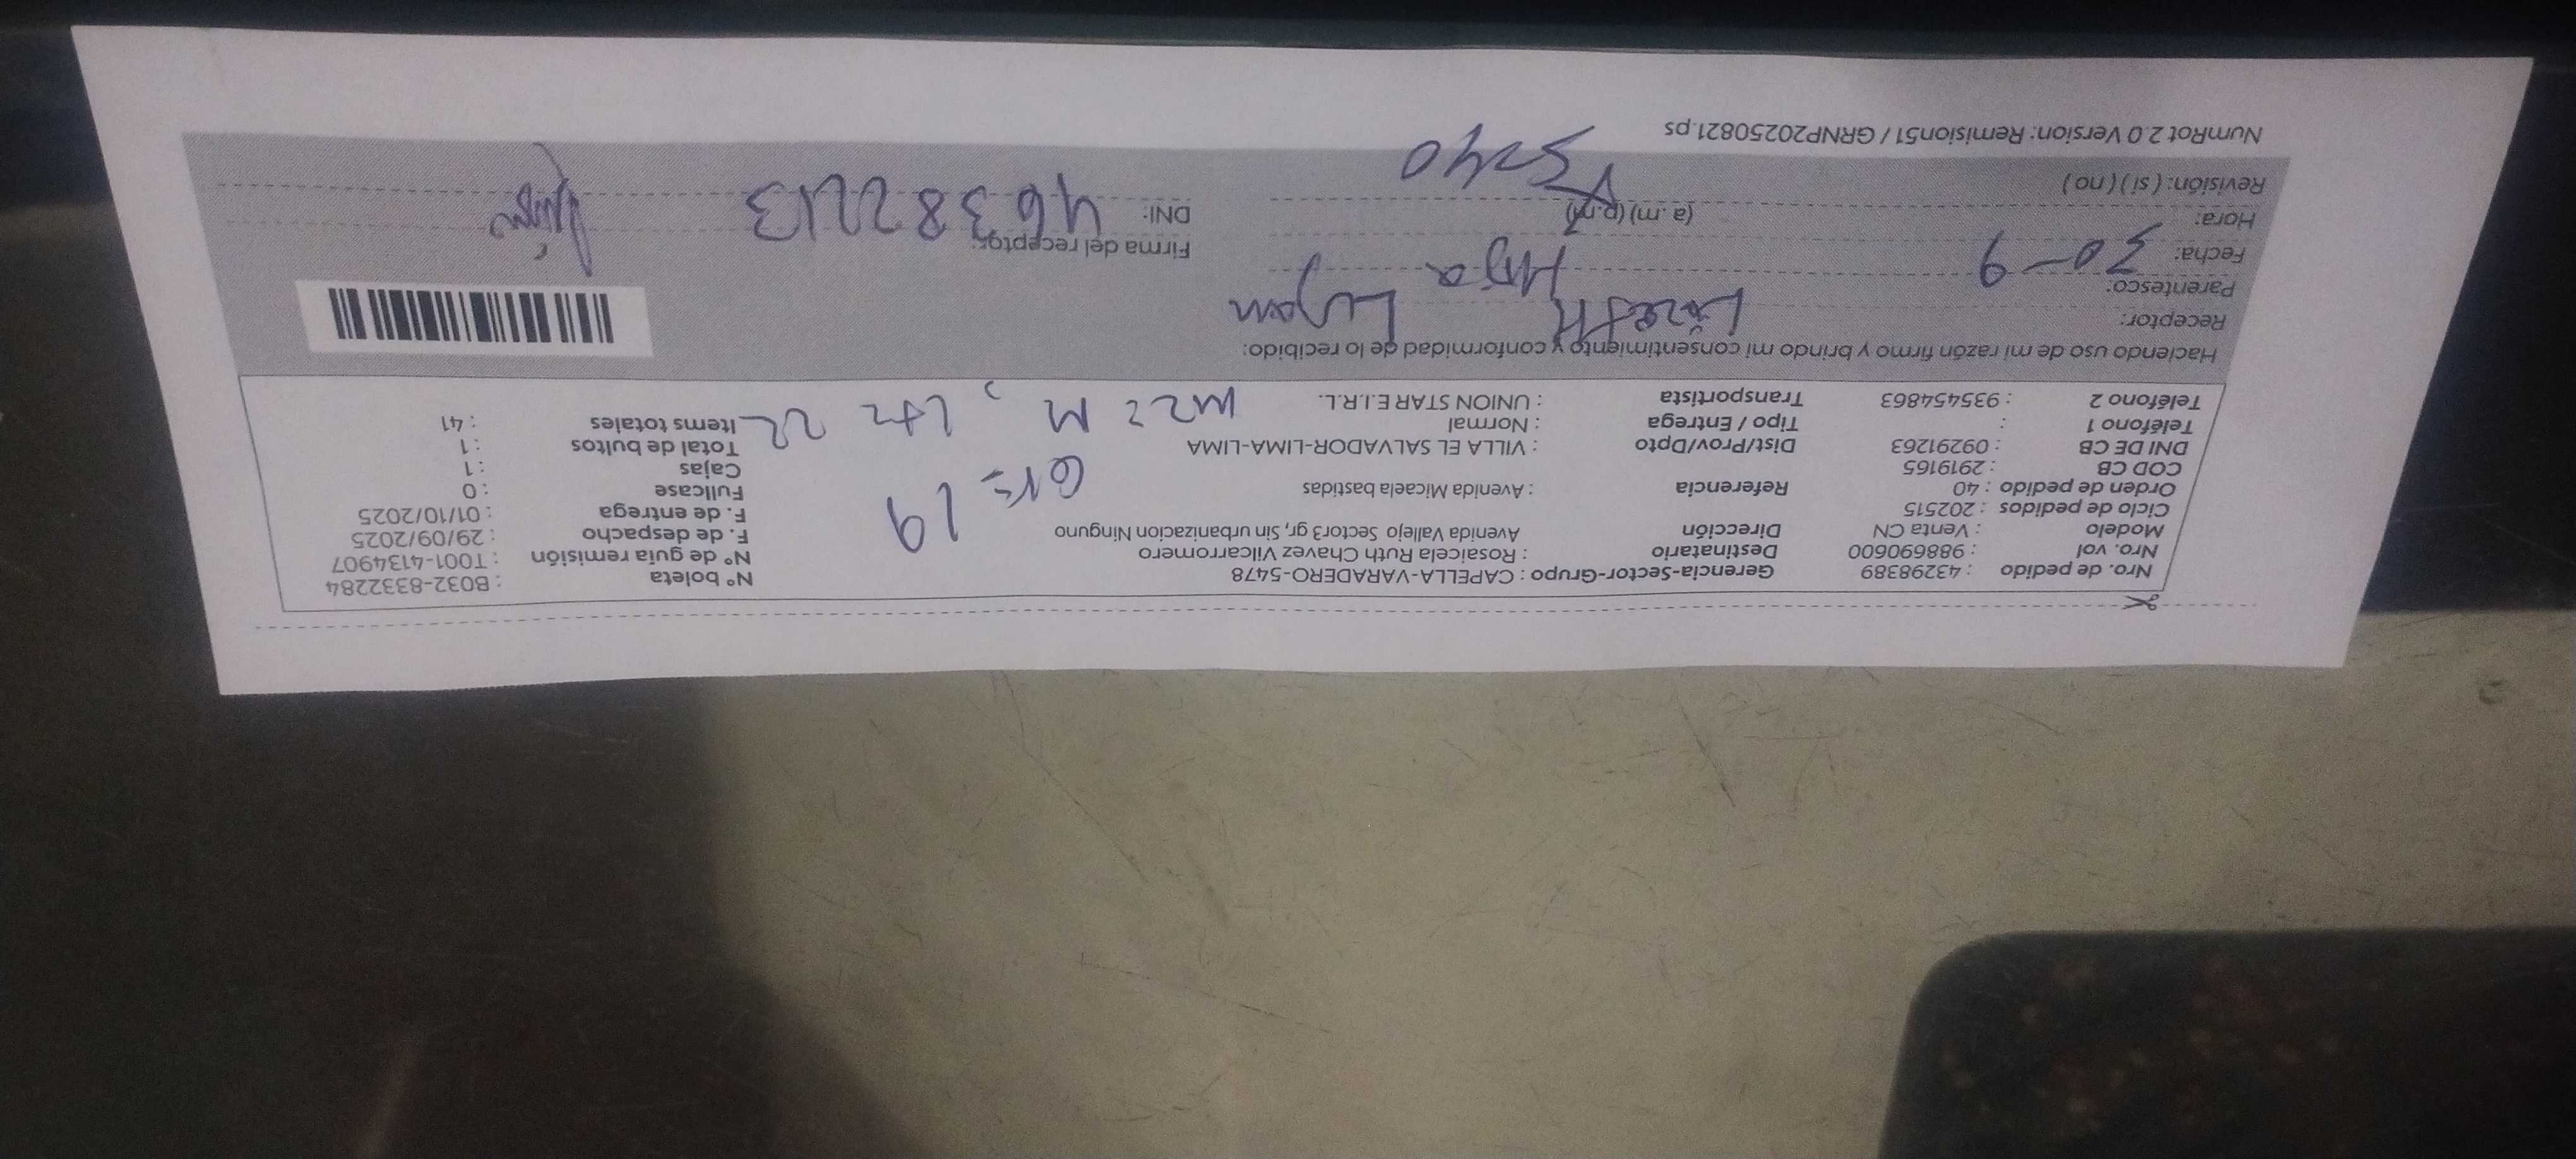 Nro. de pedido : 43298389 Gerencia-Sector-Grupo : CAPELLA-VARADERO-5478 N° boleta : B032-8332284
Nro. vol : 988690600 Destinatario : Rosaicela Ruth Chavez Vilcarromero N° de guia remisión : T001-4134907
Modelo : Venta CN Dirección Avenida Vallejo Sector3 gr, Sin urbanizacion Ninguno F. de despacho : 29/09/2025
Ciclo de pedidos : 202515 F. de entrega : 01/10/2025
Orden de pedido : 40 Referencia : Avenida Micaela bastidas Fullcase : 0
Gr= 19
COD CB : 2919165 Cajas : 1
DNI DE CB : 09291263 Dist/Prov/Dpto : VILLA EL SALVADOR-LIMA-LIMA Total de bultos : 1
Teléfono 1 : Tipo / Entrega : Normal Items totales : 41
Teléfono 2 : 935454863 Transportista : UNION STAR E.I.R.L.
mz= M, Lt= 22
Haciendo uso de mi razón firmo y brindo mi consentimiento y conformidad de lo recibido:
Receptor: Lizeth Lujan
Parentesco: Hija
Fecha: 30-9 Firma del receptor:
Hora: (a.m) (p.m) DNI: 46382213
Revisión: ( si ) ( no ) 5:40
NumRot 2.0 Version: Remision51 / GRNP20250821.ps